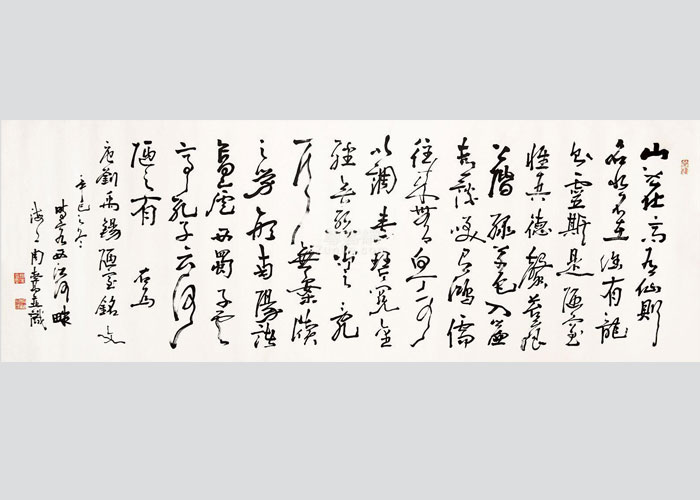 山不在高有仙則
名水不在深有龍
則靈斯是陋室
惟吾德馨苔痕
上階綠草色入簾
青談笑有鴻儒
往來無白丁可
以調素琴閱金
經無絲竹之亂
耳無案牘
之勞形南陽諸
葛廬西蜀子雲
亭孔子云何
陋之有 右為
唐劉禹錫陋室銘文
辛巳之冬
時客西江河畔
海上周慧珺並識